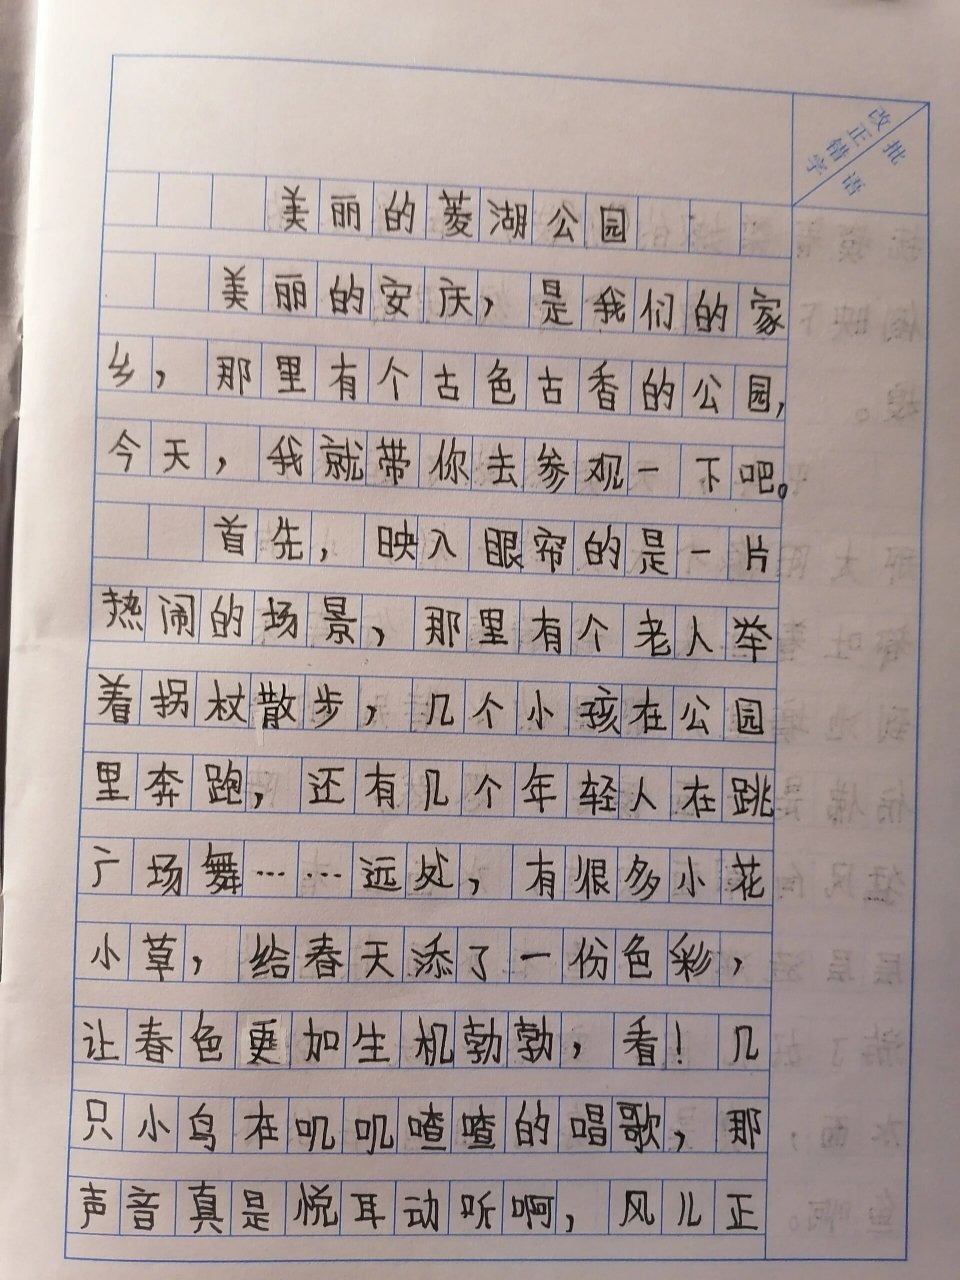 改正错字
批语
美丽的菱湖公园
美丽的安庆，是我们的家
乡，那里有个古色古香的公园，
今天，我就带你去参观一下吧。
首先，映入眼帘的是一片
热闹的场景，那里有个老人举
着拐杖散步，几个小孩在公园
里奔跑，还有几个年轻人在跳
广场舞……远处，有很多小花
小草，给春天添了一份色彩，
让春色更加生机勃勃，看！几
只小鸟在叽叽喳喳的唱歌，那
声音真是悦耳动听啊，风儿正